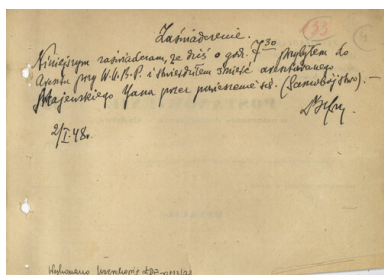 33
Zaświadczenie.
Niniejszym zaświadczam, że dziś o godz. 7 30 przybyłem do
Aresztu przy W.U.B.P. i stwierdziłem śmierć aresztowanego
Jana przez powieszenie się. (Samobójstwo). –
2/I. 48 r.
Wykonano